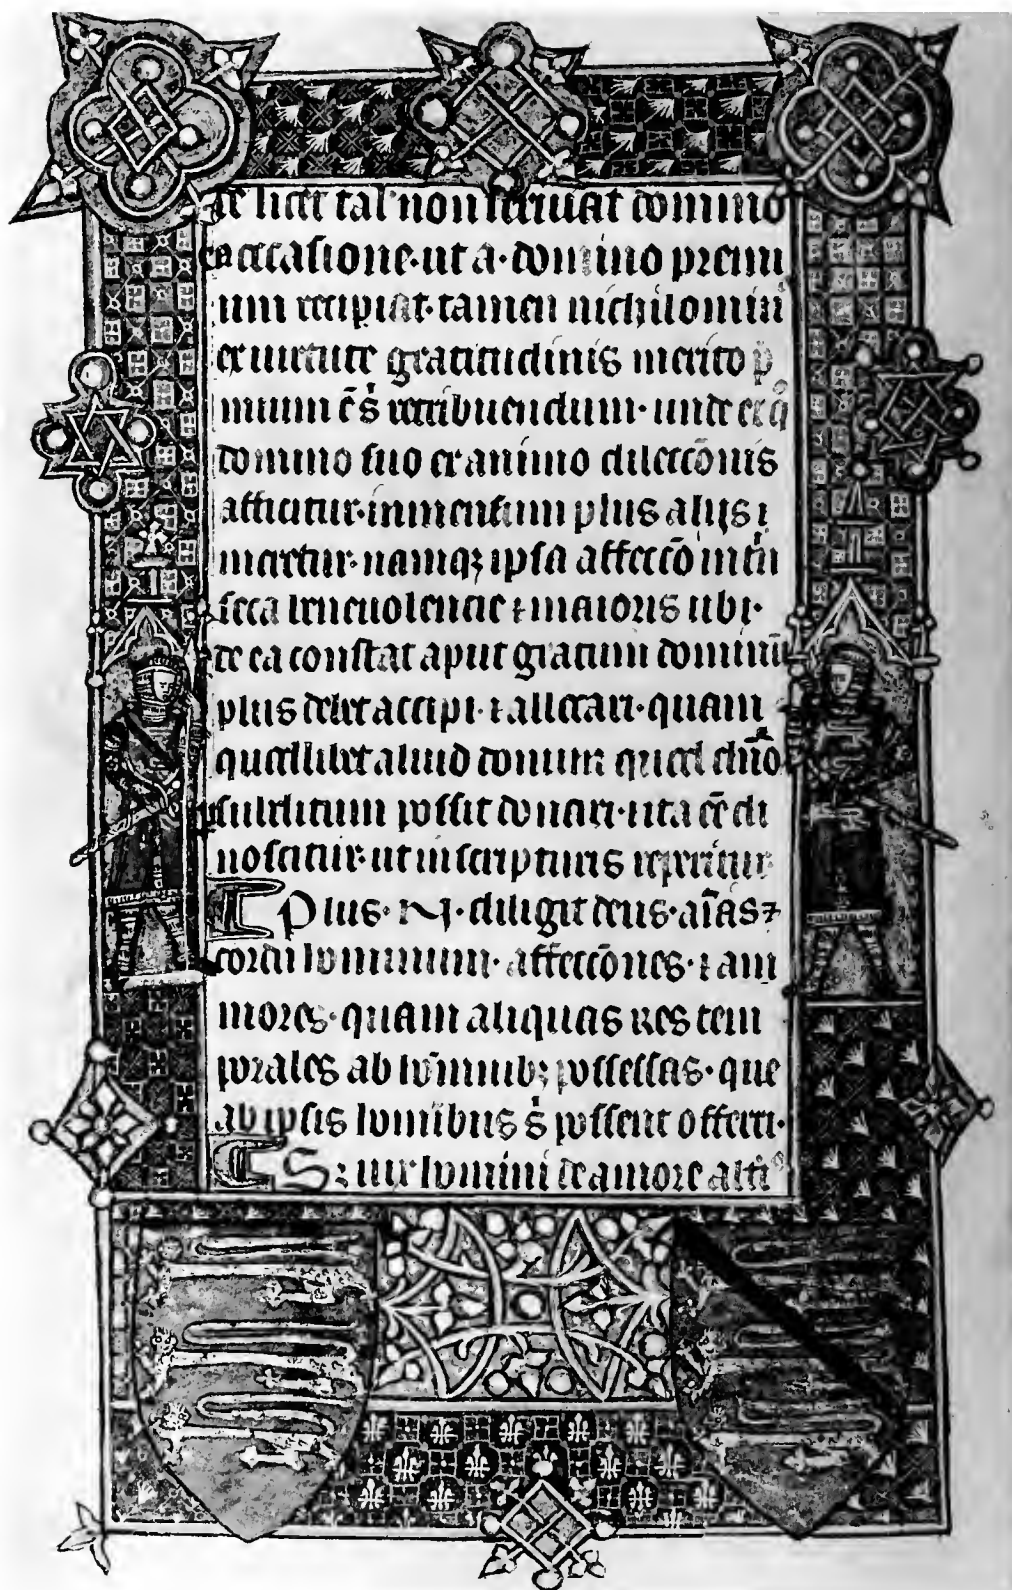 licet tal' non seruiat domino
occasione · ut a · domino premi
um recipiat · tamen nichilomin'
ex uirtute gratitudinis merito p̄
mium ēs retribuendum · unde et q̇
domino suo ex animo dileccōnis
afficitur · inmensum plus alijs ī
meretur · namqꝫ ipsa affeccō intri
seca beneuolencie ⁊ maioris ubi ·
de ea constat aput gratum dominū
plus debet accipi · ⁊ allectari · quam
quodlibet aliud donum quod dnō
subditum possit donari · ita cē di
noscitur · ut in scripturis reperitur
Plus · N · diligit deus · aīas ⁊
cordium hominum · affeccōnes · ⁊ am
mores · quam aliquas res tem
porales ab hōminibꝫ possessas · que
ab ipsis homibus s̄ possent offerri ·
Sꝫ homini de amore alti